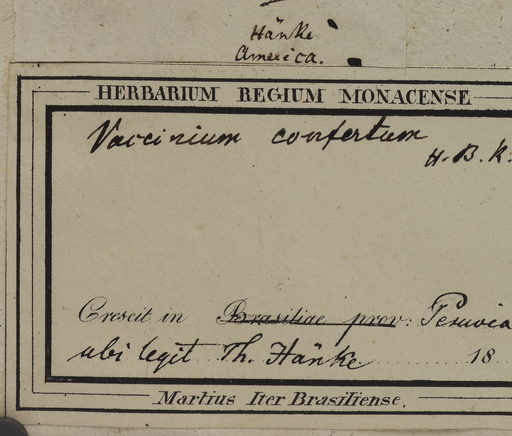 Hänke
America.
HERBARIUM REGIUM MONACENSE
Vaccinium confertum
H. B. K.
Crescit in Brasiliae prov. Peruvia
ubi legit Th. Hänke 18
Martius Iter Brasiliense.